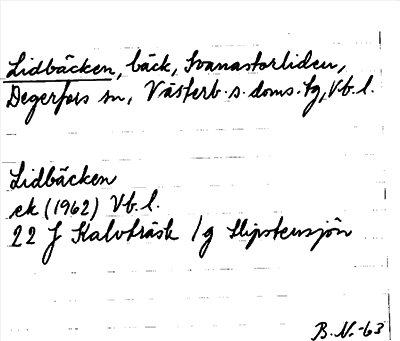 Lidbäcken, bäck, Svanastorliden,
Degerfors sn, Västerb. s. doms. tg, Vb. l.
Lidbäcken
ek (1962) Vb. l.
22 J Kalvträsk 1g Slipstensjön
B. N. -63